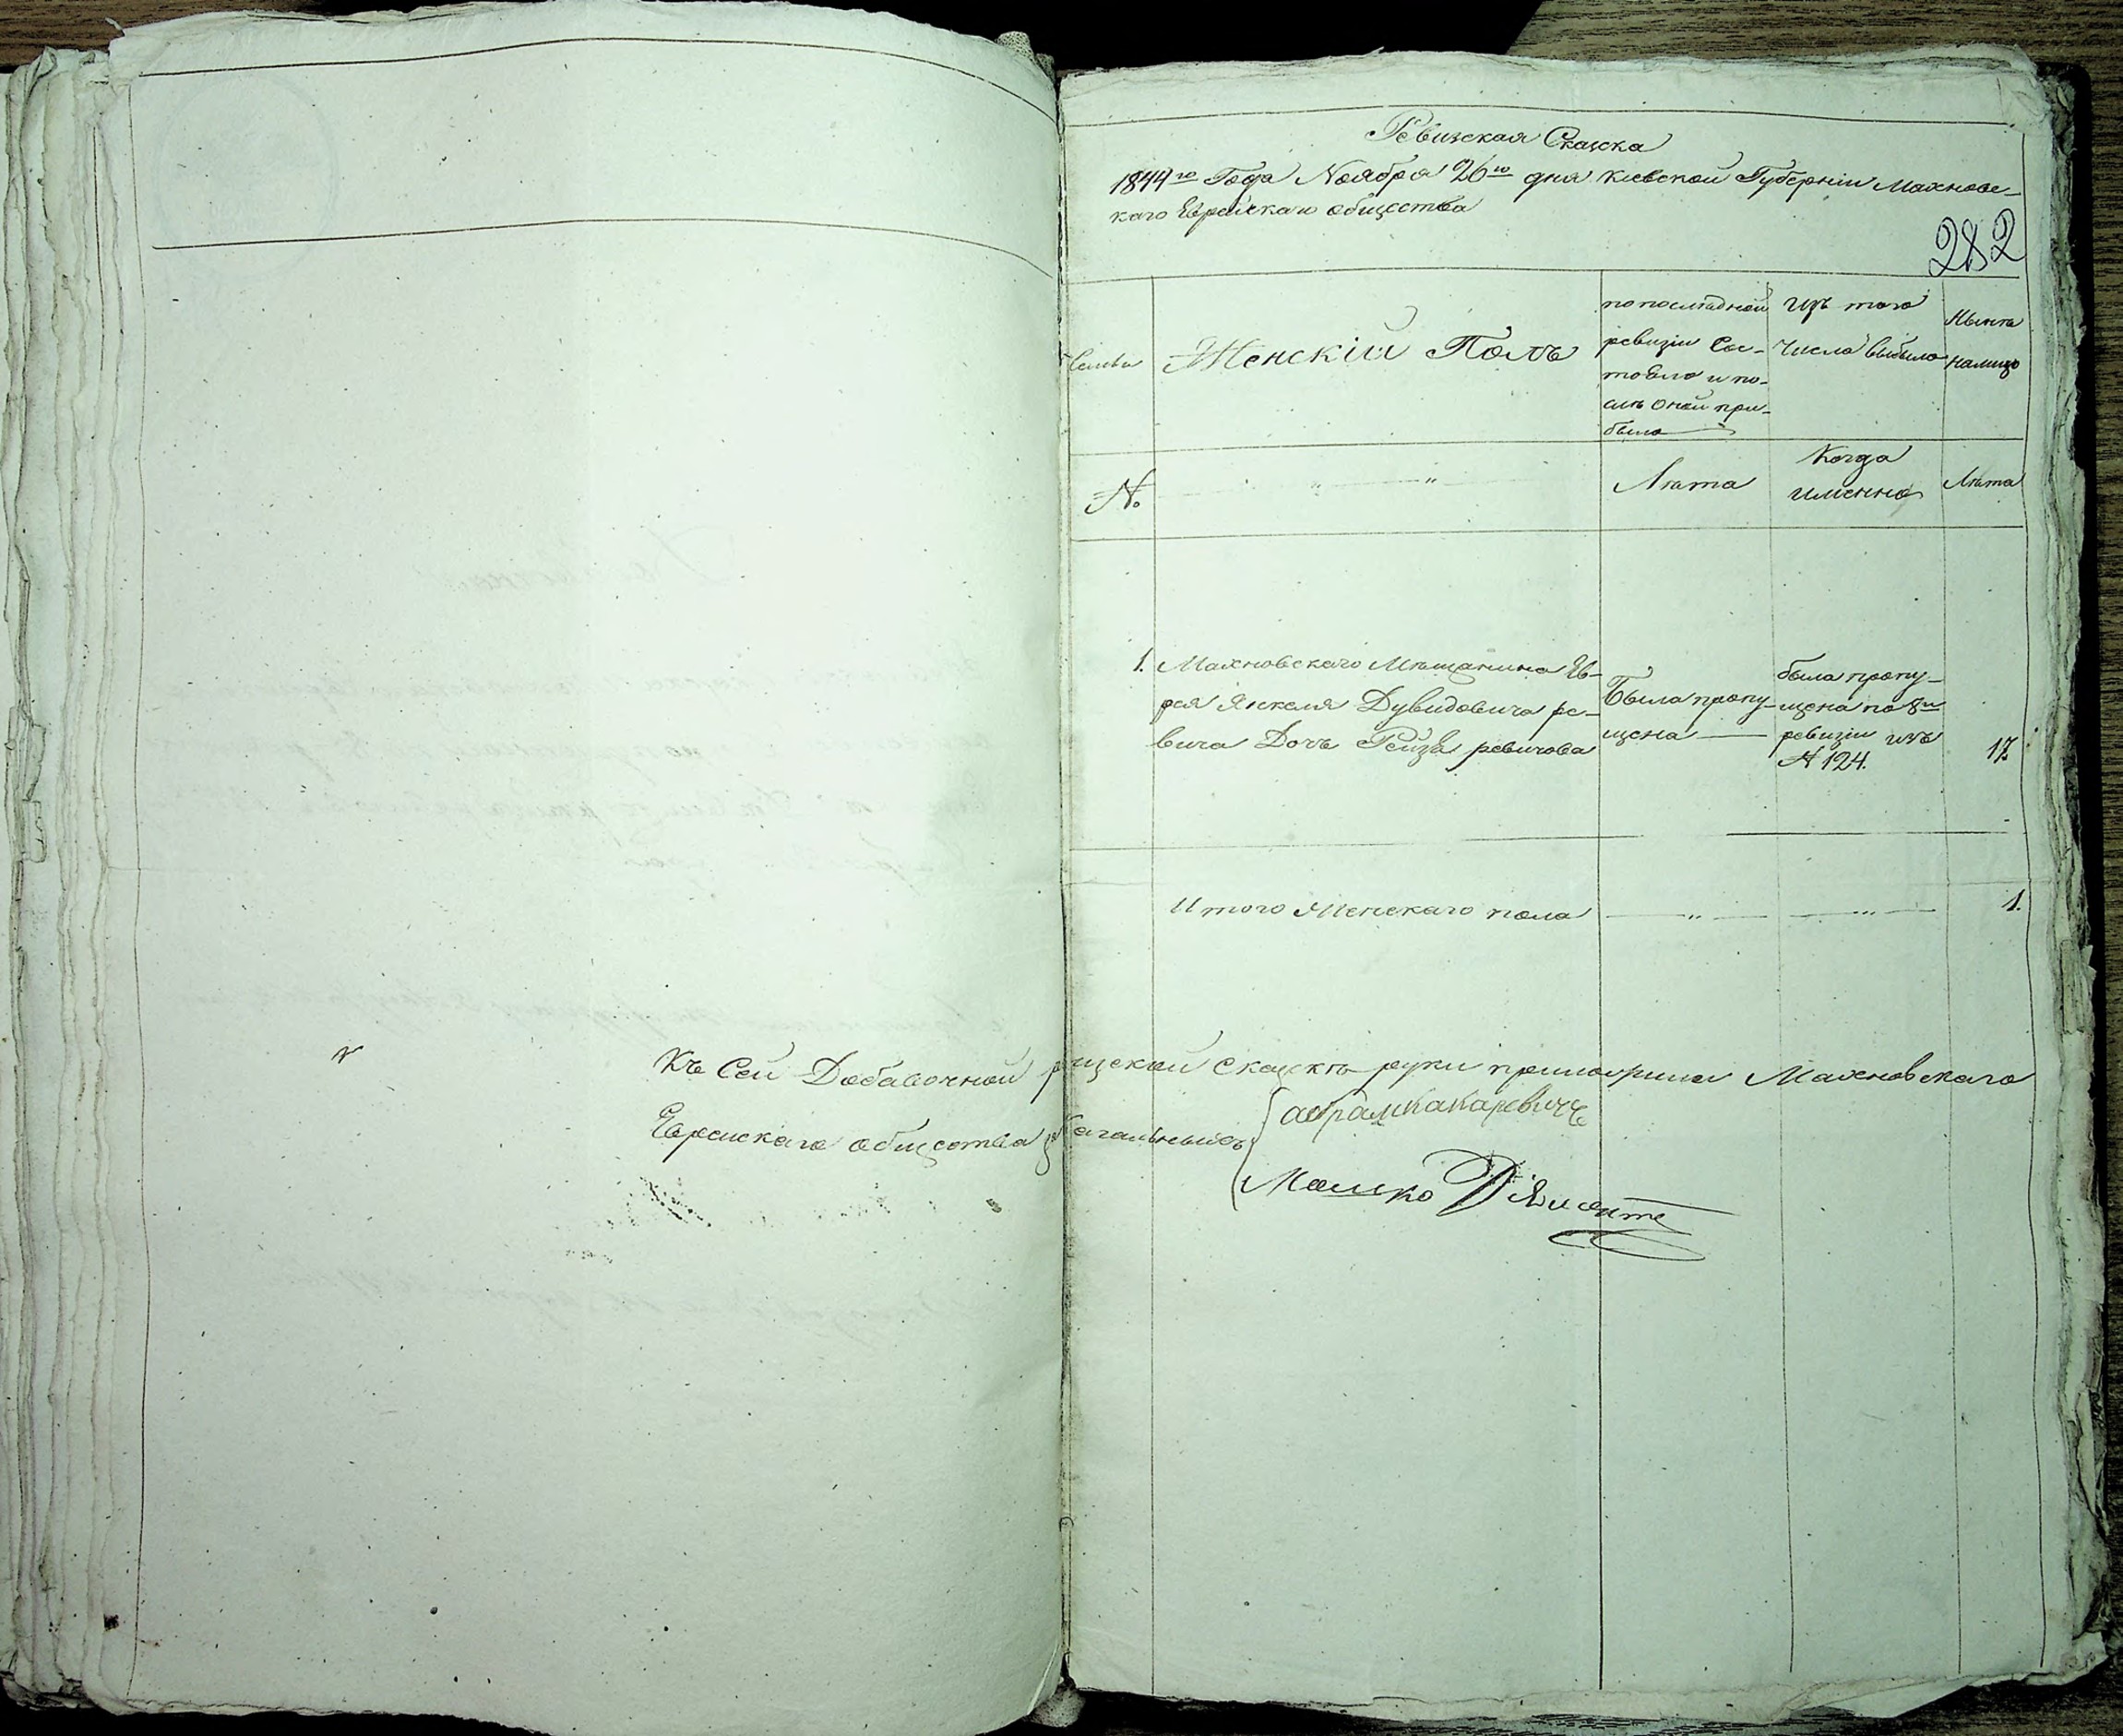 Ревизская Сказка
1844го Года Ноября 26го дня Киевской Губерніи Махновс-
каго Еврейскаго общества
282
Семьи
Женскій Полъ
по последней
ревизіи Сос-
тояло и по-
слѣ оной при-
было
Изъ того
числа выбыло
Нынѣ
налицо
№
Лѣта
Когда
именно
Лѣта
1. Махновскаго Мѣщанина Ев-
рея Янкеля Дувидовича ре-
вича Дочь Рейза ревичова
Была пропу-
щена
была пропу-
щена по 8й
ревизіи изъ
№ 124.
17.
Итого Женскаго пола
1.
Къ Сей Добавочной сказкѣ руки приложили Махновскаго
Еврейскаго общества
Мошко